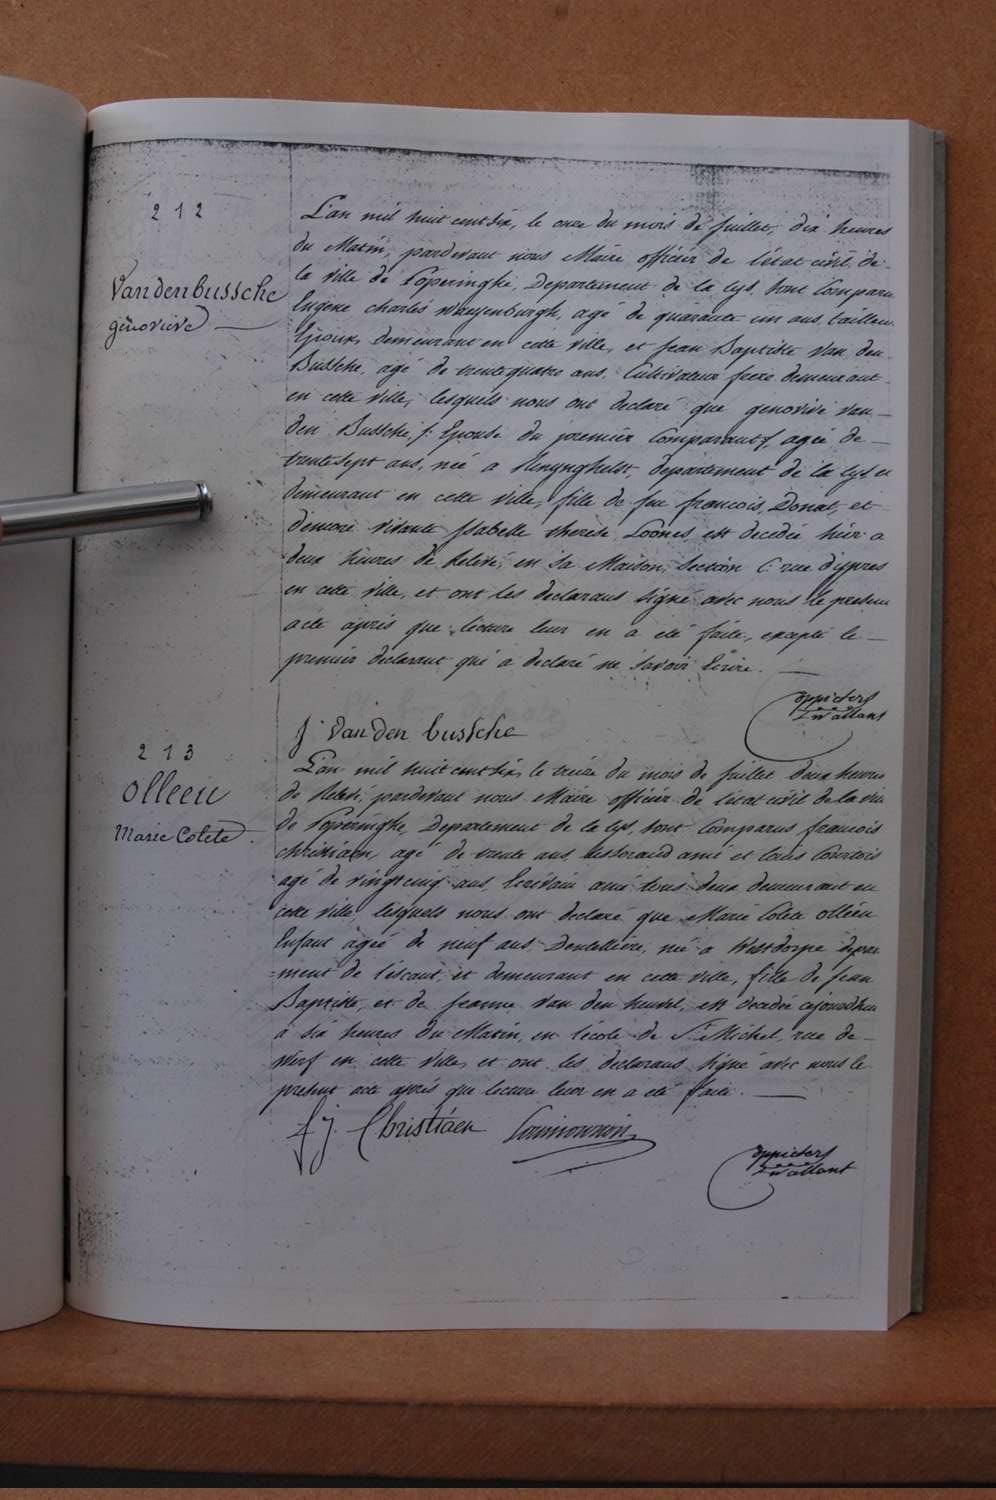 212
Vandenbussche
génoviève
L'an mil huit cent six, le onze du mois de juillet, dix heures
du Matin, pardevant nous Maire officier de l'état civil de
la ville de Poperinghe, Departement de la Lys, sont Comparu
Eugene charles Waeyenburgh, agé de quarante un ans, tailleur
Epoux, demeurant en cette ville, et jean Baptiste van den
Bussche, agé de trente quatre ans, Cultivateur frere demeurant
en cette ville, lesquels nous ont declaré que genovive van
den Bussche /: Epouse du premier Comparant /, agée de
trente sept ans, née a departement de la Lys, et
demeurant en cette ville, fille de feu francois, Donat, et
d'encore vivante Isabelle therese Loones, est decedée hier a
deux heures de Relevé, en sa Maison, Section C rue d'ypres
en cette ville, et ont les declarans signé avec nous le present
acte après que lecture leur en a été faite, excepté le
premier declarant qui a declaré ne savoir Ecrire.
j van den bussche
213
olleeu
Marie Colete
L'an mil huit cent six, le treize du mois de juillet deux heures
de Relevé, pardevant nous Maire officier de l'état civil de la ville
de Poperinghe, Departement de la Lys, sont Comparus francois
christiaen, agé de trente ans, ami et Louis Courtois
agé de vingt cinq ans, Ecrivain ami tous deux demeurant en
cette ville, lesquels nous ont declaré que Marie Colete olleeu
Enfant agée de neuf ans Dentellière, née a Westdorpe depar
=ment de l'éscaut, et demeurant en cette ville, fille de jean
Baptiste, et de jeanne van den heuvel, est decedée cejourd'hui
à six heures du Matin, en l'école de St Michel, rue de
Werf en cette ville, et ont les declarans signé avec nous le
present acte après que lecture leur en a été faite.
f j. Christiaen